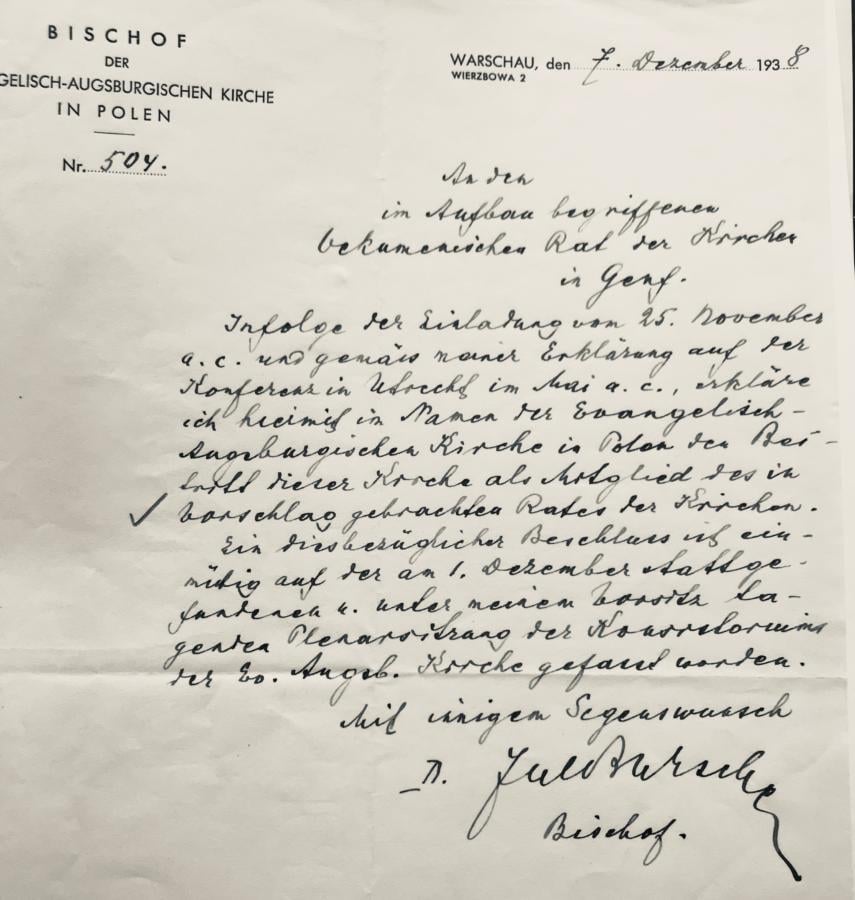 BISCHOF
DER
GELISCH-AUGSBURGISCHEN KIRCHE
IN POLEN
Nr. 504.
WARSCHAU, den 7. Dezember 1938
WIERZBOWA 2
An den
im Aufbau begriffenen
Oekumenischen Rat der Kirchen
in Genf.
Infolge der Einladung vom 25. November
a. c. und gemäss meiner Erklärung auf der
Konferenz in Utrecht im Mai a. c., erkläre
ich hiermit im Namen der Evangelisch-
Augsburgischen Kirche in Polen den Bei-
tritt dieser Kirche als Mitglied des in
Vorschlag gebrachten Rates der Kirchen.
Ein diesbezüglicher Beschluss ist ein-
mütig auf der am 1. Dezember stattge-
fundenen u. unter meinem Vorsitz ta-
genden Plenarsitzung der Konsistoriums
der Ev. Augsb. Kirche gefasst worden.
Mit innigem Segenswunsch
D. Jul. Bursche
Bischof.